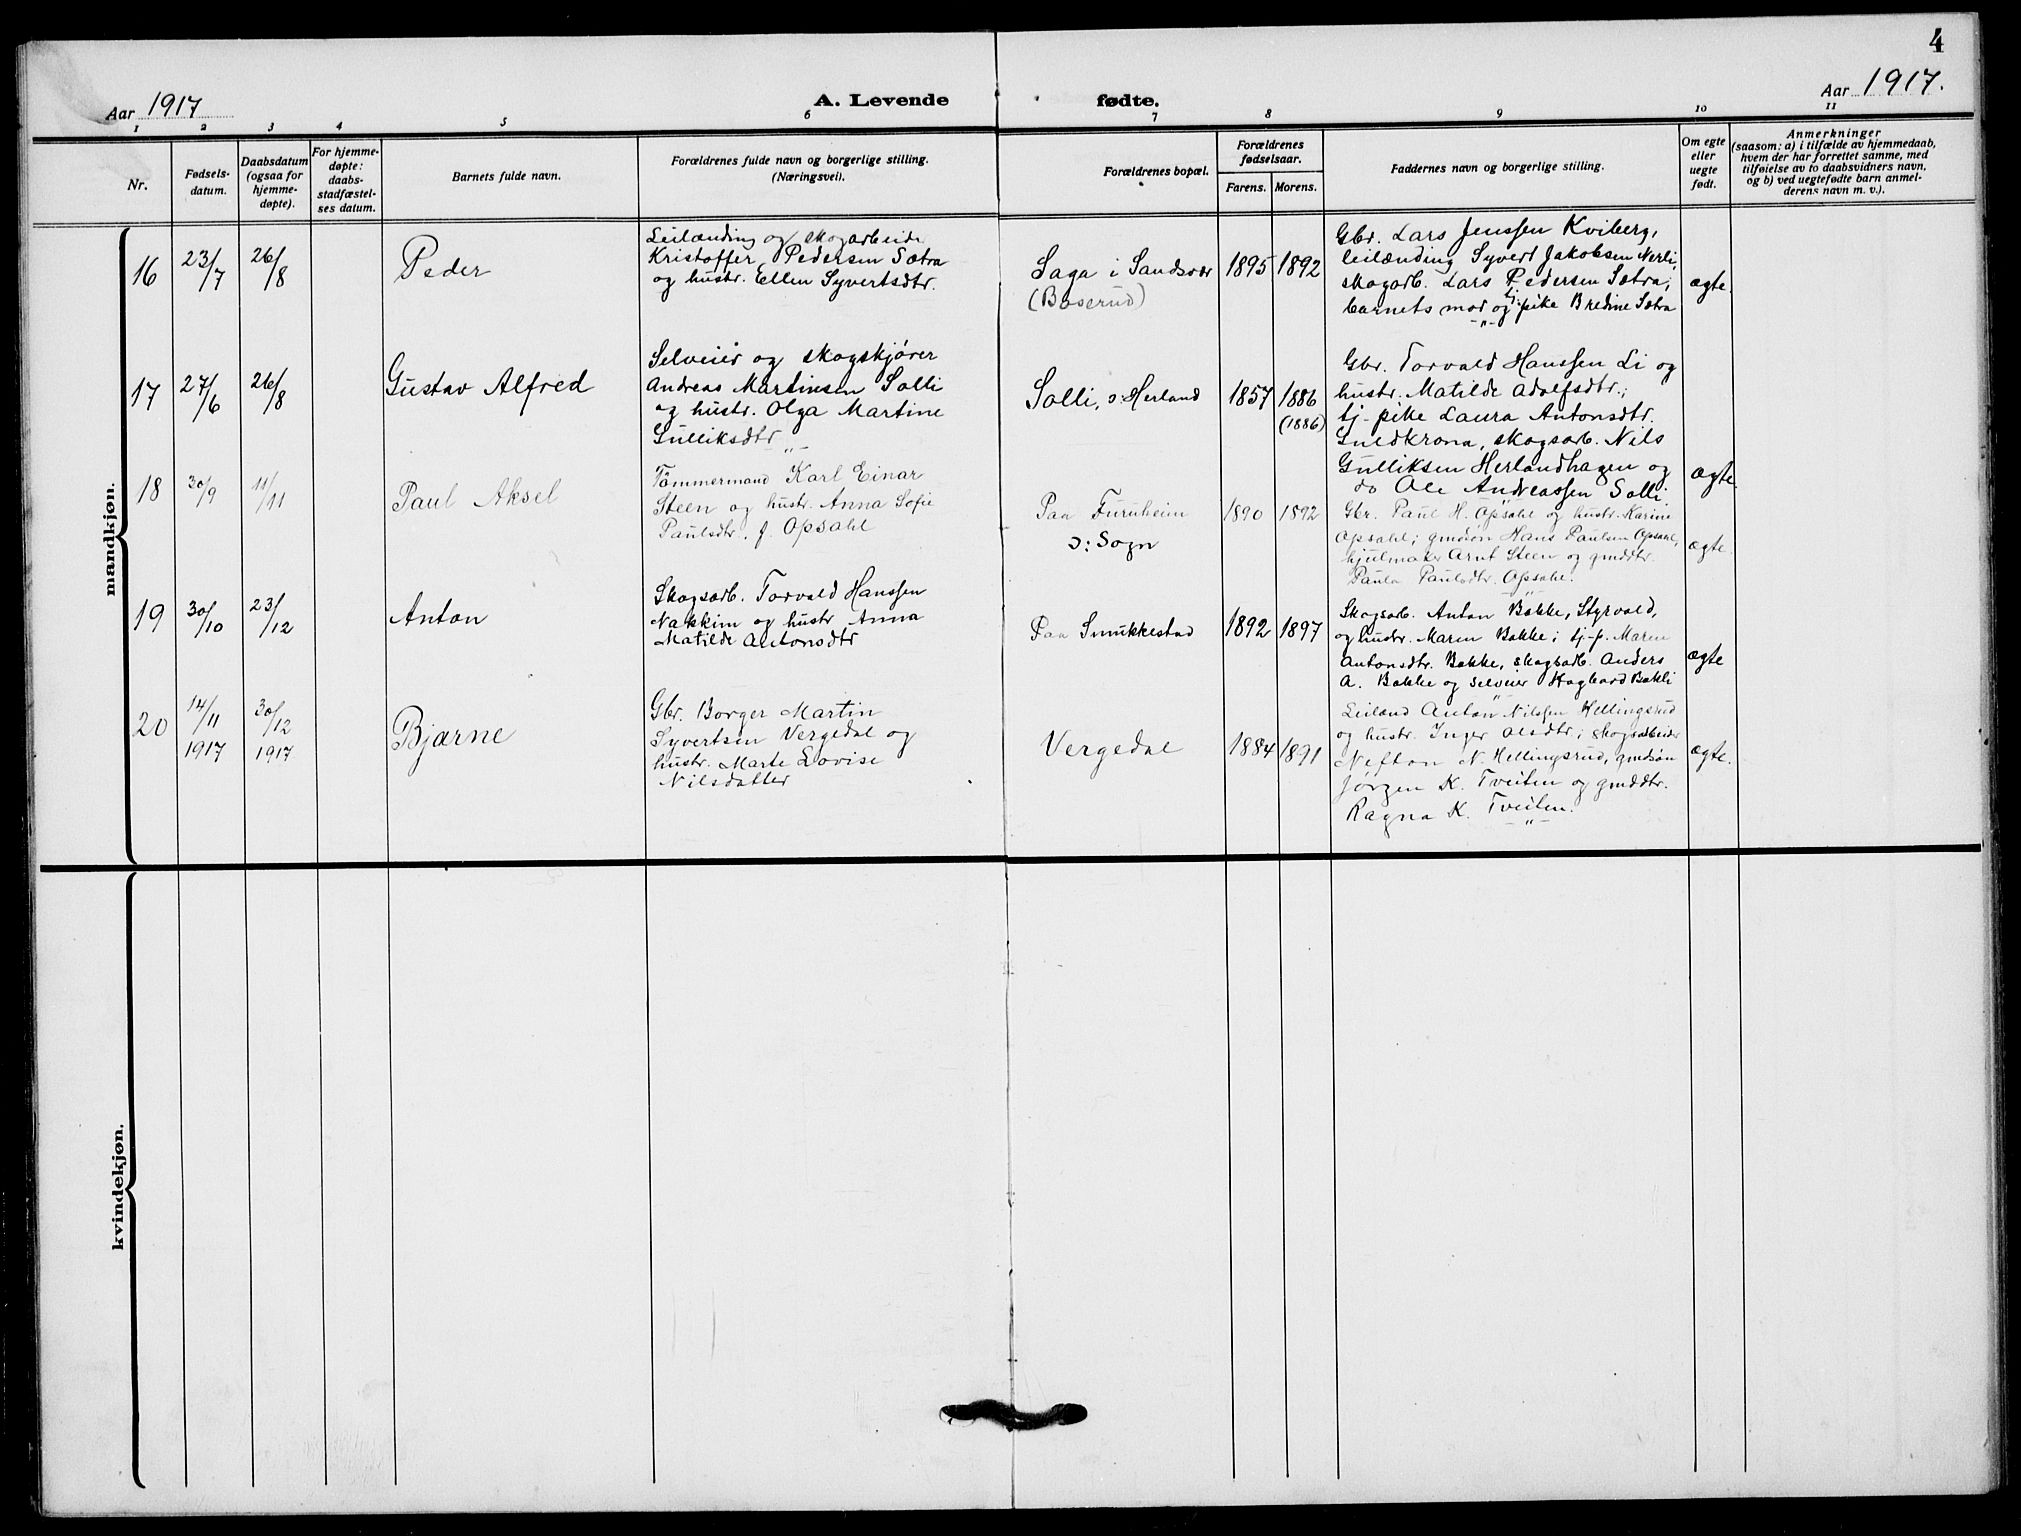 4
Aar 1917
A. Levende fødte.
Aar 1917.
1 2 3 4 5 6 7 8 9 10 11
Nr.
Fødsels-
datum.
Daabsdatum
(ogsaa for
hjemme-
døpte).
For hjemme-
døpte:
daabs-
stadfæstel-
ses datum.
Barnets fulde navn.
Forældrenes fulde navn og borgerlige stilling.
(Næringsvei).
Forældrenes bopæl.
Forældrenes
fødselsaar.
Farens. Morens.
Faddernes navn og borgerlige stilling.
Om egte
eller
uegte
født.
Anmerkninger
(saasom: a) i tilfælde av hjemmedaab,
hvem der har forrettet samme, med
tilføielse av to daabsvidners navn,
og b) ved uegtefødte barn anmel-
derens navn m. v.).
mandkjøn.
16
23/7
26/8
Peder
Leilænding og skogarbeide
Kristoffer Pedersen Sætra
og hustr. Ellen Syvertsdtr.
Saga i Sandsvær
(Baserud)
1895 1892
Gbr. Lars Jenssen Kviberg,
leilænding Syvert Jakobsen Nerli,
skogarb. Lars Pedersen Sætra,
barnets mor og tj. pike Bredine Sætra
-"-
ægte.
17
27/6
26/8
Gustav Alfred
Selveier og skogskjører
Andreas Martinsen Solli
og hustr. Olga Martine
Gulliksdtr
-"-
Solli, ɔ: Herland
1857 1886
(1886)
Gbr. Torvald Hanssen Li og
hustr. Matilde Adolfsdtr.;
tj-pike Laura Antonsdtr.
Guldkrona, skogsarb. Nils
Gulliksen Herlandhagen og
do Ole Andreassen Solli
ægte.
18
30/9
11/11
Paul Aksel
Tømmermand Karl Einar
Steen og hustr. Anna Sofie
Paulsdtr. f. Opsahl
Paa Furuheim
ɔ: Sogn
1890 1892
Gbr. Paul H. Opsahl og hustr. Karine
Opsahl; gmdsøn Hans Paulsen Opsahl,
hjulmaker Arnt Steen og gmddtr.
Paula Paulsdtr. Opsahl.
ægte.
19
30/10
23/12
Anton
Skogsarb. Torvald Hanssen
Nakkim og hustr Anna
Matilde Antonsdtr
Paa Smukkestad
1892 1897
Skogsarb. Anton Bakke, Styrvold,
og hustr. Maren Bakke; tj-p. Maren
Antonsdtr. Bakke, skogsarb. Anders
A. Bakke og selveier Hagbard Bakli
ægte
20
14/11
1917
30/12
1917
Bjarne
Gbr. Borger Martin
Syvertsen Vergedal og
hustr. Marte Lovise
Nilsdatter
Vergedal
1884 1891
Leiländ Anton Nilssen Hellingsrud
og hustr. Inger Olsdtr; skogsarbeider
Nefton N. Hellingsrud, gmdsøn
Jørgen K. Tveiten og gmddtr.
Ragna K. Tveiten.
-"-
ægte.
kvindekjøn.